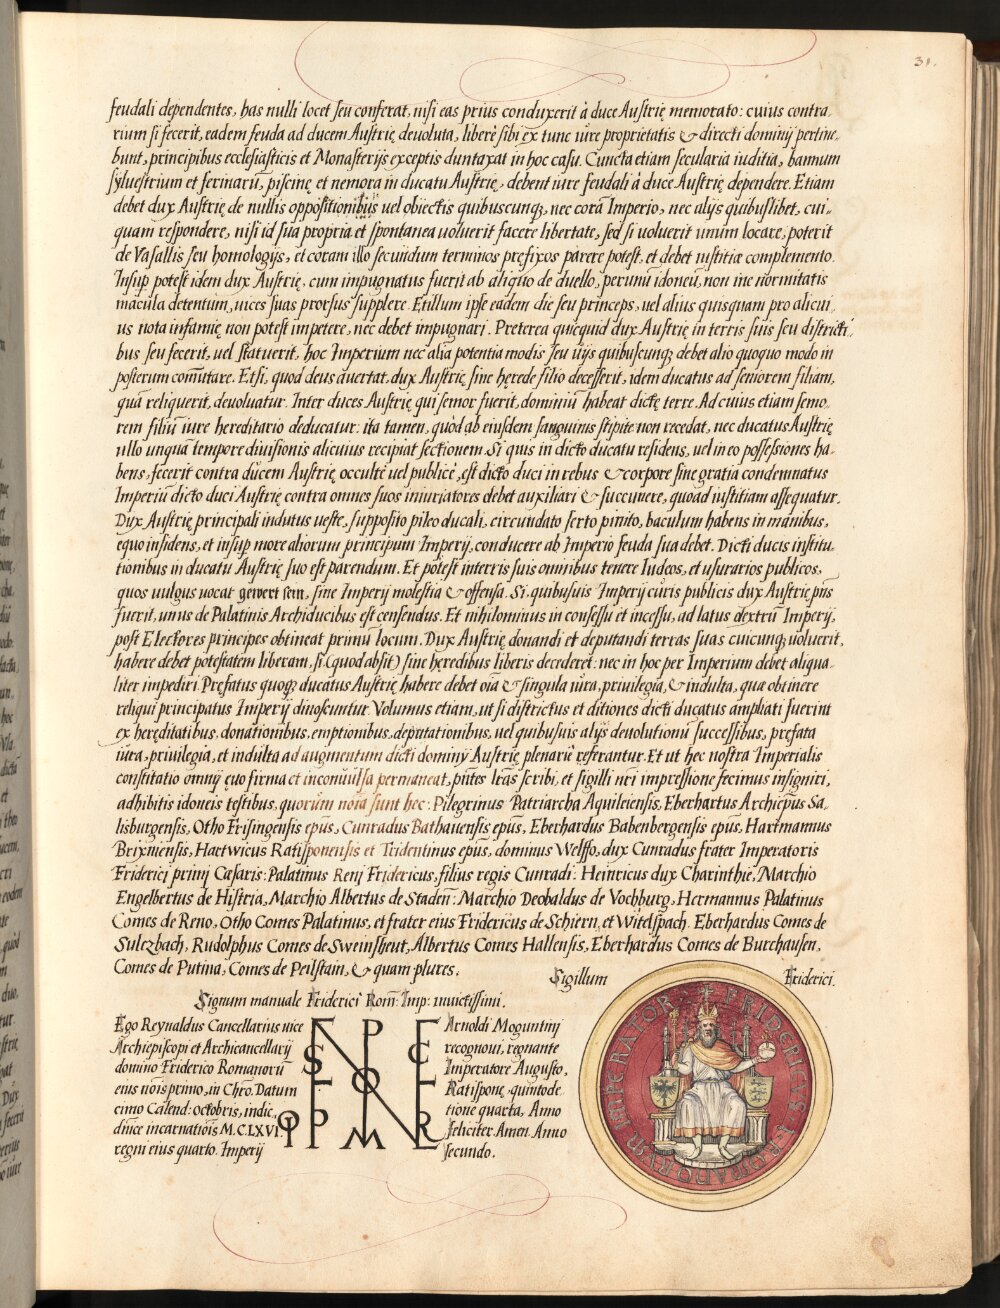 31.
feudali dependentes, has nulli locet seu conferat, nisi eas prius conduxerit à duce Austrię memorato: cuius contra-
rium si fecerit, eadem feuda ad ducem Austrię deuoluta, liberè sibi ex tunc iure proprietatis & directi dominij pertine-
bunt, principibus ecclesiasticis et Monasterijs exceptis duntaxat in hoc casu. Cuncta etiam secularia iuditia, bannum
syluestrium et ferinarū, piscinę et nemora in ducatu Austrię, debent iure feudali à duce Austrię dependere. Etiam
debet dux Austrię de nullis oppositionibus uel obiectis quibuscunq, nec corā Imperio, nec alijs quibuslibet, cui-
quam respondere, nisi id sua propria et spontanea uoluerit facere libertate, sed si uoluerit unum locare, poterit
de Vasallis seu homologijs, et coram illo secundum terminos prefixos parere potest, et debet iustitiæ complemento.
Insup potest idem dux Austrię, cum impugnatus fuerit ab aliquo de duello, per unū idoneū, non in enormitatis
macula detentum, uices suas prorsus supplere. Et illum ipse eadem die seu princeps, uel alius quisquam pro alicui-
us nota infamię non potest impetere, nec debet impugnari. Preterea quicquid dux Austrię in terris suis seu districti-
bus seu fecerit, uel statuerit, hoc Imperium nec alia potentia modis seu uijs quibuscunq debet alio quoquo modo in
posterum com̄utare. Et si, quod deus auertat, dux Austrię sine hęrede filio decesserit, idem ducatus ad seniorem filiam,
quā reliquerit, deuoluatur. Inter duces Austrię qui semor fuerit, dominiū habeat dictę terre. Ad cuius etiam semo-
rem filiū iure hereditario deducatur: ita tamen, quòd ab eiusdem sanguinis stipite non recedat, nec ducatus Austrię
ullo unquā tempore diuisionis alicuius recipiat sectionem. Si quis in dicto ducatu residens, uel in eo possessiones ha-
bens, fecerit contra ducem Austrię occultè uel publicè, est dicto duci in rebus & corpore sine gratia condemnatus
Imperiū dicto duci Austrię contra omnes suos iniuriatores debet auxiliari & succurrere, quoad iustitiam assequatur.
Dux Austrię principali indutus ueste, supposito pileo ducali, circundato serto pinito, baculum habens in manibus,
equo insidens, et insup more aliorum principum Imperij, conducere ab Imperio feuda sua debet. Dicti ducis institu-
tionibus in ducatu Austrię suo est parendum. Et potest in terris suis omnibus tenere Iudeos, et usurarios publicos,
quos uulgus uocat gewert sein, sine Imperij molestia & offensa. Si quibusuis Imperij curis publicis dux Austrię pn̄s
fuerit, unus de Palatinis Archiducibus est censendus. Et nihilominus in consessu et incessu, ad latus dextrū Imperij,
post Electores principes obtineat primū locum. Dux Austrię donandi et deputandi terras suas cuicunq uoluerit,
habere debet potestatem liberam, si (quod absit) sine heredibus liberis decederet: nec in hoc per Imperium debet aliqua-
liter impediri. Prefatus quoq ducatus Austrię habere debet om̄ia & singula iura, priuilegia, & indulta, quæ obtinere
reliqui principatus Imperij dinoscuntur. Volumus etiam, ut si districtus et ditiones dicti ducatus ampliati fuerint
ex hęreditatibus, donationibus, emptionibus, deputationibus, uel quibusuis alijs deuolutionū successibus, prefata
iura, priuilegia, et indulta ad augmentum dicti dominij Austrię plenariè referantur. Et ut hec nostra Imperialis
constitatio omnij ęuo firma et inconuulsa permaneat, pn̄tes lr̄as scribi, et sigilli nr̄i impressione fecimus insigniri,
adhibitis idoneis testibus, quorum noīa sunt hec: Pilegrinus Patriarcha Aquileiensis, Eberhartus Archiep̄us Sa-
lisburgensis, Otho Frisingensis ep̄us, Cunradus Bathauensis ep̄us, Eberhardus Babenbergensis ep̄us, Hartmannus
Brixinensis, Haetwicus Ratisponensis et Tridentinus ep̄us, dominus Welffo, dux Cunradus frater Imperatoris
Friderici primi Cæsaris: Palatinus Reni Fridericus, filius regis Cunradi: Heinricus dux Charinthię, Marchio
Engelbertus de Histria, Marchio Albertus de Staden: Marchio Deobaldus de Vochburg, Hermannus Palatinus
Comes de Reno, Otho Comes Palatinus, et frater eius Fridericus de Schiern, et Witelspach. Eberhardus Comes de
Sulczbach, Rudolphus Comes de Sweinsheut, Albertus Comes Hallensis, Eberhardus Comes de Burchausen,
Comes de Putina, Comes de Peilstain, & quam plures.
Sigillum Friderici.
Signum manuale Friderici Rom: Imp: inuictissimi.
Ego Reynaldus Cancellarius uice Arnoldi Moguntini
Archiepiscopi et Archicancellarij recognoui, regnante
domino Friderico Romanorū Imperatore Augusto,
eius nōis primo, in Chrō. Datum Ratisponę quintode-
cimo Calend: octobris, indic- tione quarta, Anno
dn̄ice incarnatiōis M.C.LVI. feliciter Amen. Anno
regni eius quarto. Imperij secundo.
FRIDERICVS ROMANORVM IMPERATOR